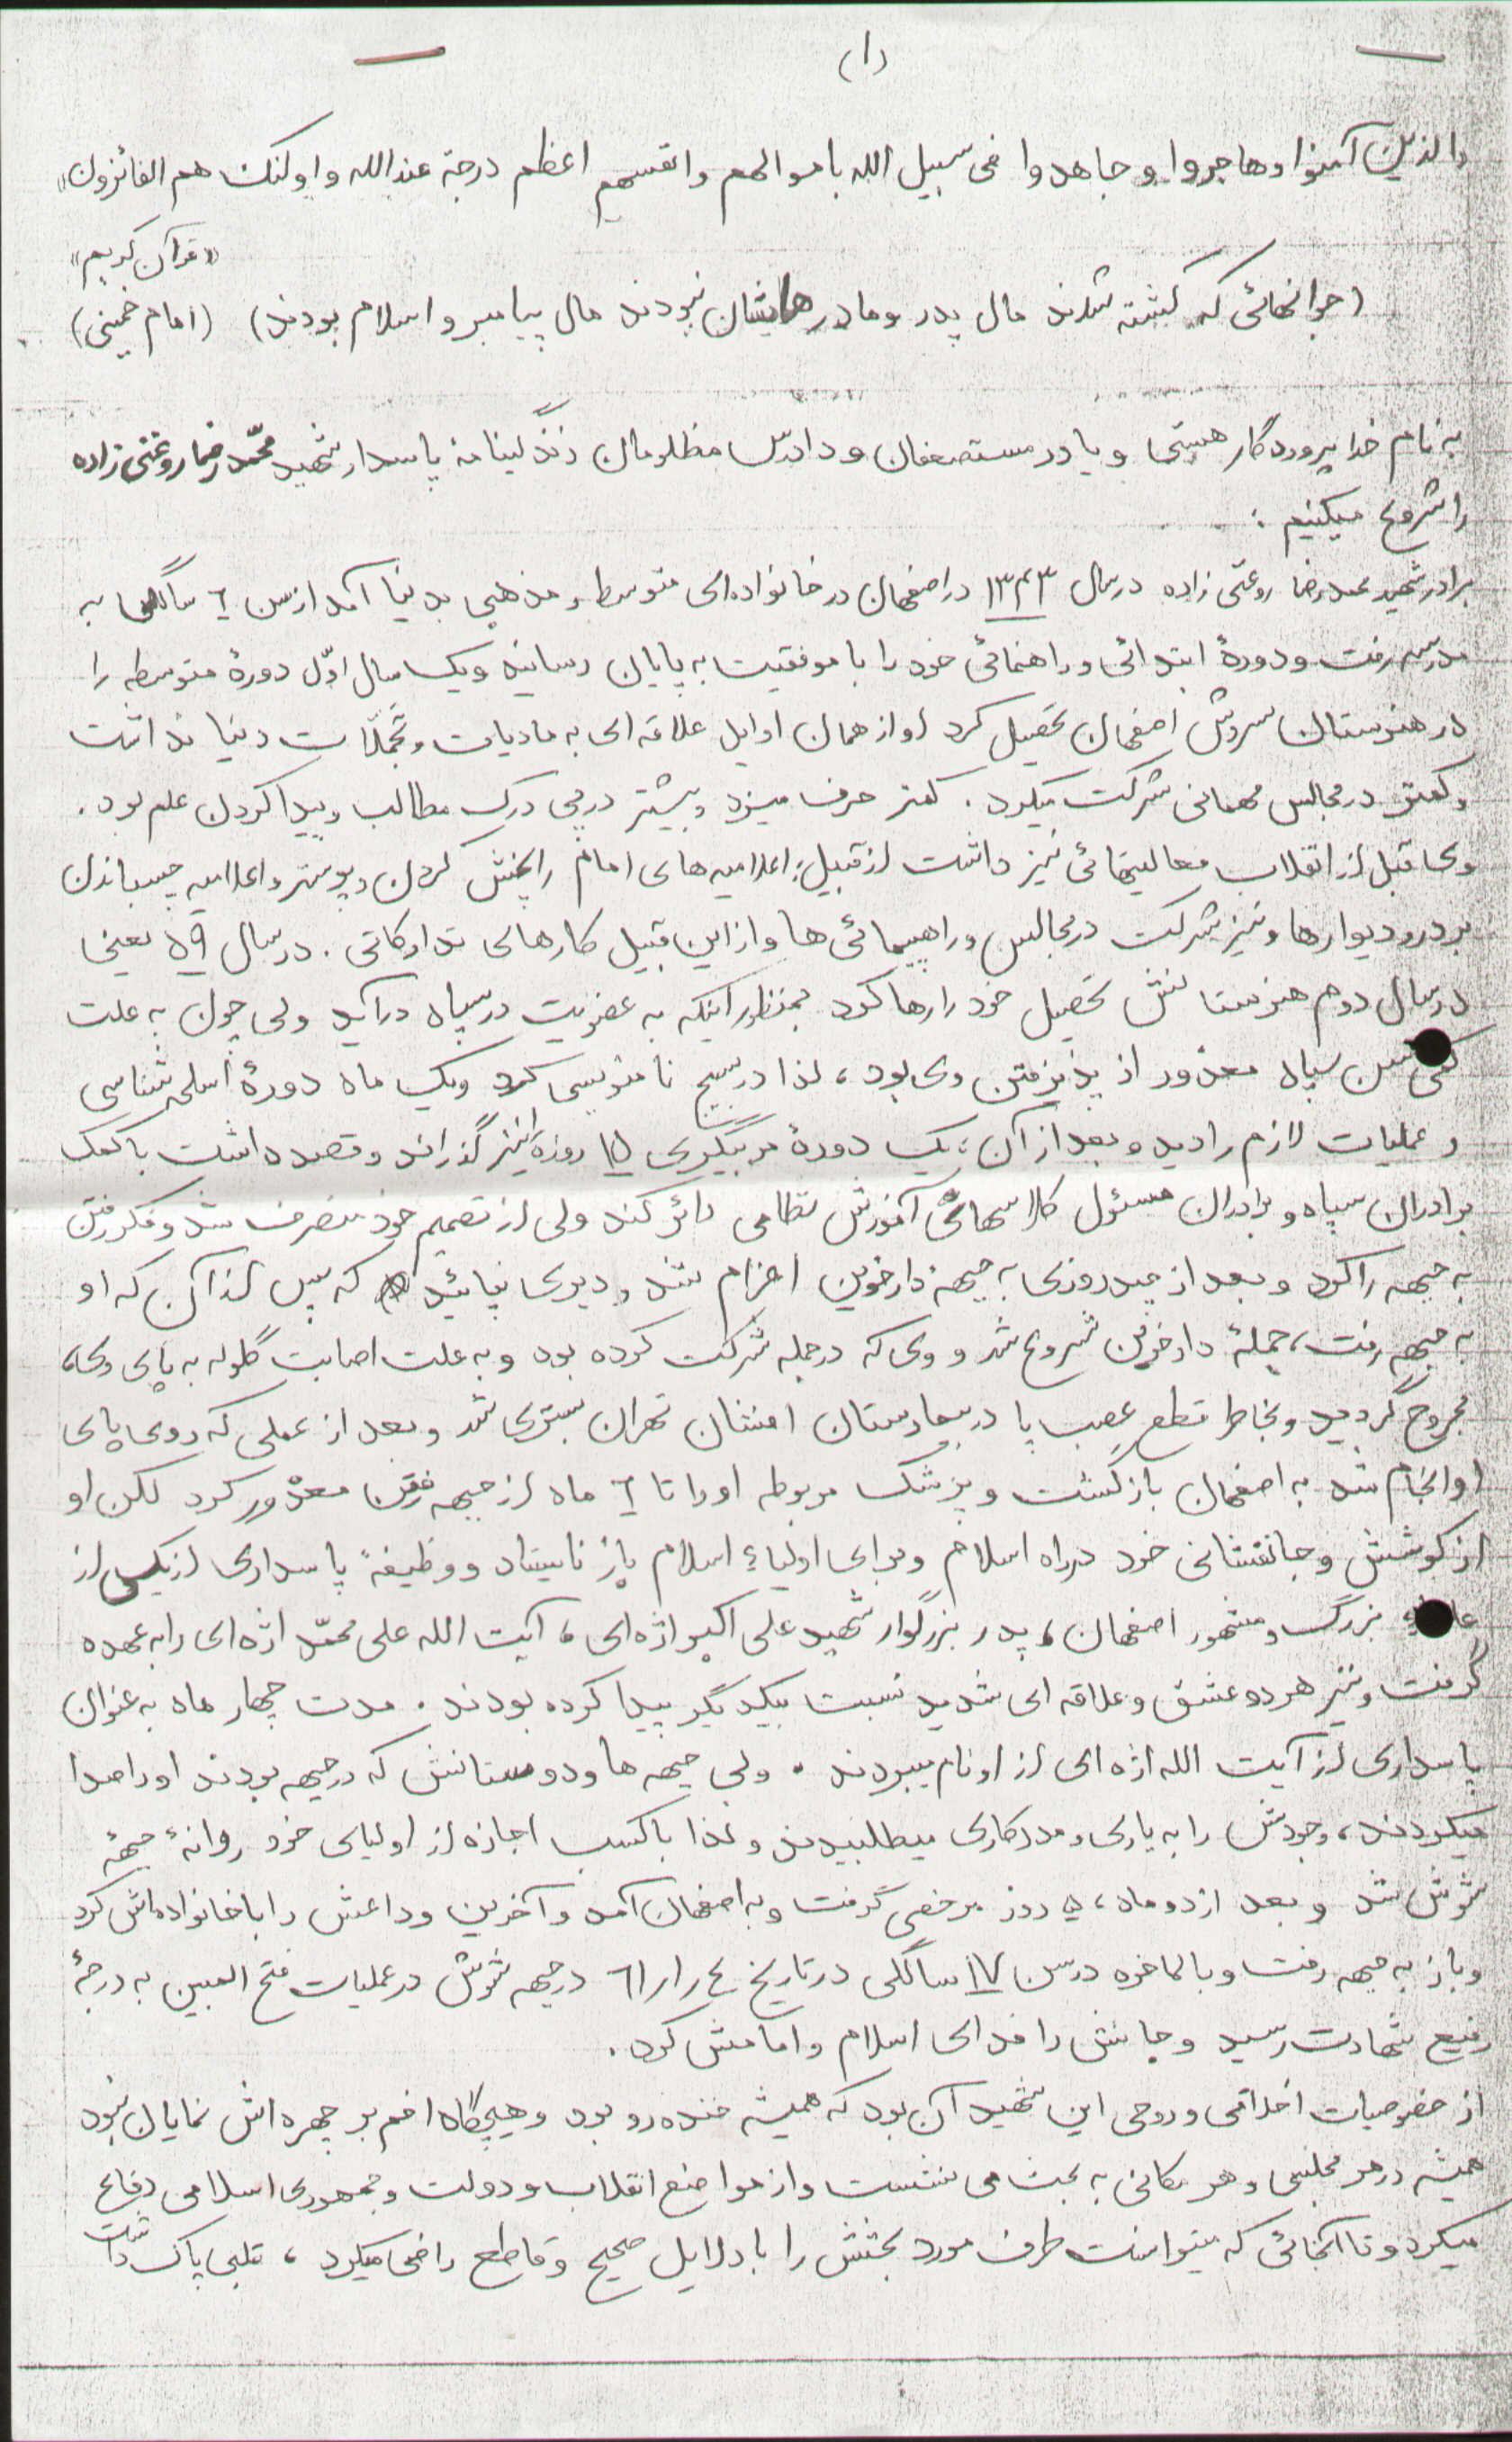 (۱)
والذین آمنوا وهاجروا وجاهدوا فی سبیل الله باموالهم وانفسهم اعظم درجة عندالله واولئک هم الفائزون»
«قرآن کریم»
(جوانهائی که کشته شدند مال پدر ومادرهایشان نبودند مال پیامبر واسلام بودند) (امام خمینی)
به نام خدا پروردگار هستی ویاور مستضعفان ودادرس مظلومان زندگینامهٔ پاسدار شهید محمّدرضا روغنی زاده
را شروع میکنیم :
برادر شهید محمدرضا روغنی زاده درسال ۱۳۴۳ دراصفهان درخانواده‌ای متوسط و مذهبی بدنیا آمد ازسن ٦ سالگی به
مدرسه رفت ودورهٔ ابتدائی وراهنمائی خود را باموفقیت به پایان رسانید ویک سال اوّل دورهٔ متوسطه را
در هنرستان سروش اصفهان تحصیل کرد او از همان اوایل علاقه‌ای به مادیات وتجملّات دنیا نداشت
وکمتر درمجالس مهمانی شرکت میکرد . کمتر حرف میزد وبیشتر درپی درک مطالب وپیدا کردن علم بود .
وی قبل از انقلاب فعالیتهائی نیز داشت از قبیل: اعلامیه های امام را پخش کردن وپوستر واعلامیه چسباندن
بر درودیوارها ونیز شرکت درمجالس وراهپیمائی ها وازاین قبیل کارهای تدارکاتی . درسال ۵۹ یعنی
درسال دوم هنرستانش تحصیل خود را رها کرد بمنظور اینکه به عضویت درسپاه درآید ولی چون به علت
کمی سن سپاه معذور از پذیرفتن وی بود ، لذا دربسیج نامنویسی کرد ویک ماه دورهٔ اسلحه شناسی
وعملیات لازم را دید وبعد از آن ، یک دورهٔ مربیگری ۱۵ روزه را نیز گذراند وقصد داشت باکمک
برادران سپاه و برادران مسئول کلاسهائی آموزش نظامی دائر کند ولی از تصمیم خود منصرف شد وفکر رفتن
به جبهه را کرد و بعد از چند روزی به جبههٔ دارخوین اعزام شد ودیری نپائید که پس از آن که او
به جبهه رفت ، حملهٔ دارخوین شروع شد و وی که درحمله شرکت کرده بود و به علت اصابت گلوله به پای وی،
مجروح گردید وبخاطر قطع عصب پا در بیمارستان امنشان تهران بستری شد وبعد از عملی که روی پای
او انجام شد به اصفهان بازگشت وپزشک مربوطه او را تا ٦ ماه از جبهه رفتن معذور کرد لکن او
از کوشش وجانفشانی خود درراه اسلام وبرای اولیاء اسلام باز نایستاد ووظیفهٔ پاسداری ازیکی از
بزرگ ومشهور اصفهان ، پدر بزرگوار شهید علی اکبر اژه‌ای ، آیت الله علی محمّد اژه‌ای را به عهده
گرفت ونیز هردو عشق وعلاقه‌ای شدید نسبت بیکدیگر پیدا کرده بودند . مدت چهار ماه به عنوان
پاسداری از آیت الله اژه‌ای از او نام میبردند . ولی جبهه ها ودوستانش که درجبهه بودند او را صدا
میکردند ، وجودش را به یاری ومددکاری میطلبیدند ولذا باکسب اجازه از اولیای خود روانهٔ جبههٔ
شوش شد وبعد ازدوماه ، ۵ روز مرخصی گرفت وبه اصفهان آمد وآخرین وداعش را باخانواده‌اش کرد
وباز به جبهه رفت وبالاخره درسن ۱۷ سالگی درتاریخ ٤/۱/٦۱ درجبهه شوش درعملیات فتح المبین به درجهٔ
رفیع شهادت رسید وجانش را فدای اسلام وامامش کرد .
از خصوصیات اخلاقی وروحی این شهید آن بود که همیشه خنده رو بود وهیچگاه اخم بر چهره‌اش نمایان نبود
همیشه درهر مجلسی وهر مکانی به بحث می نشست وازمواضع انقلاب ودولت وجمهوری اسلامی دفاع
میکرد وتا آنجائی که میتوانست طرف مورد بحثش را با دلایل صحیح وقاطع راضی میکرد ، قلبی پاک داشت